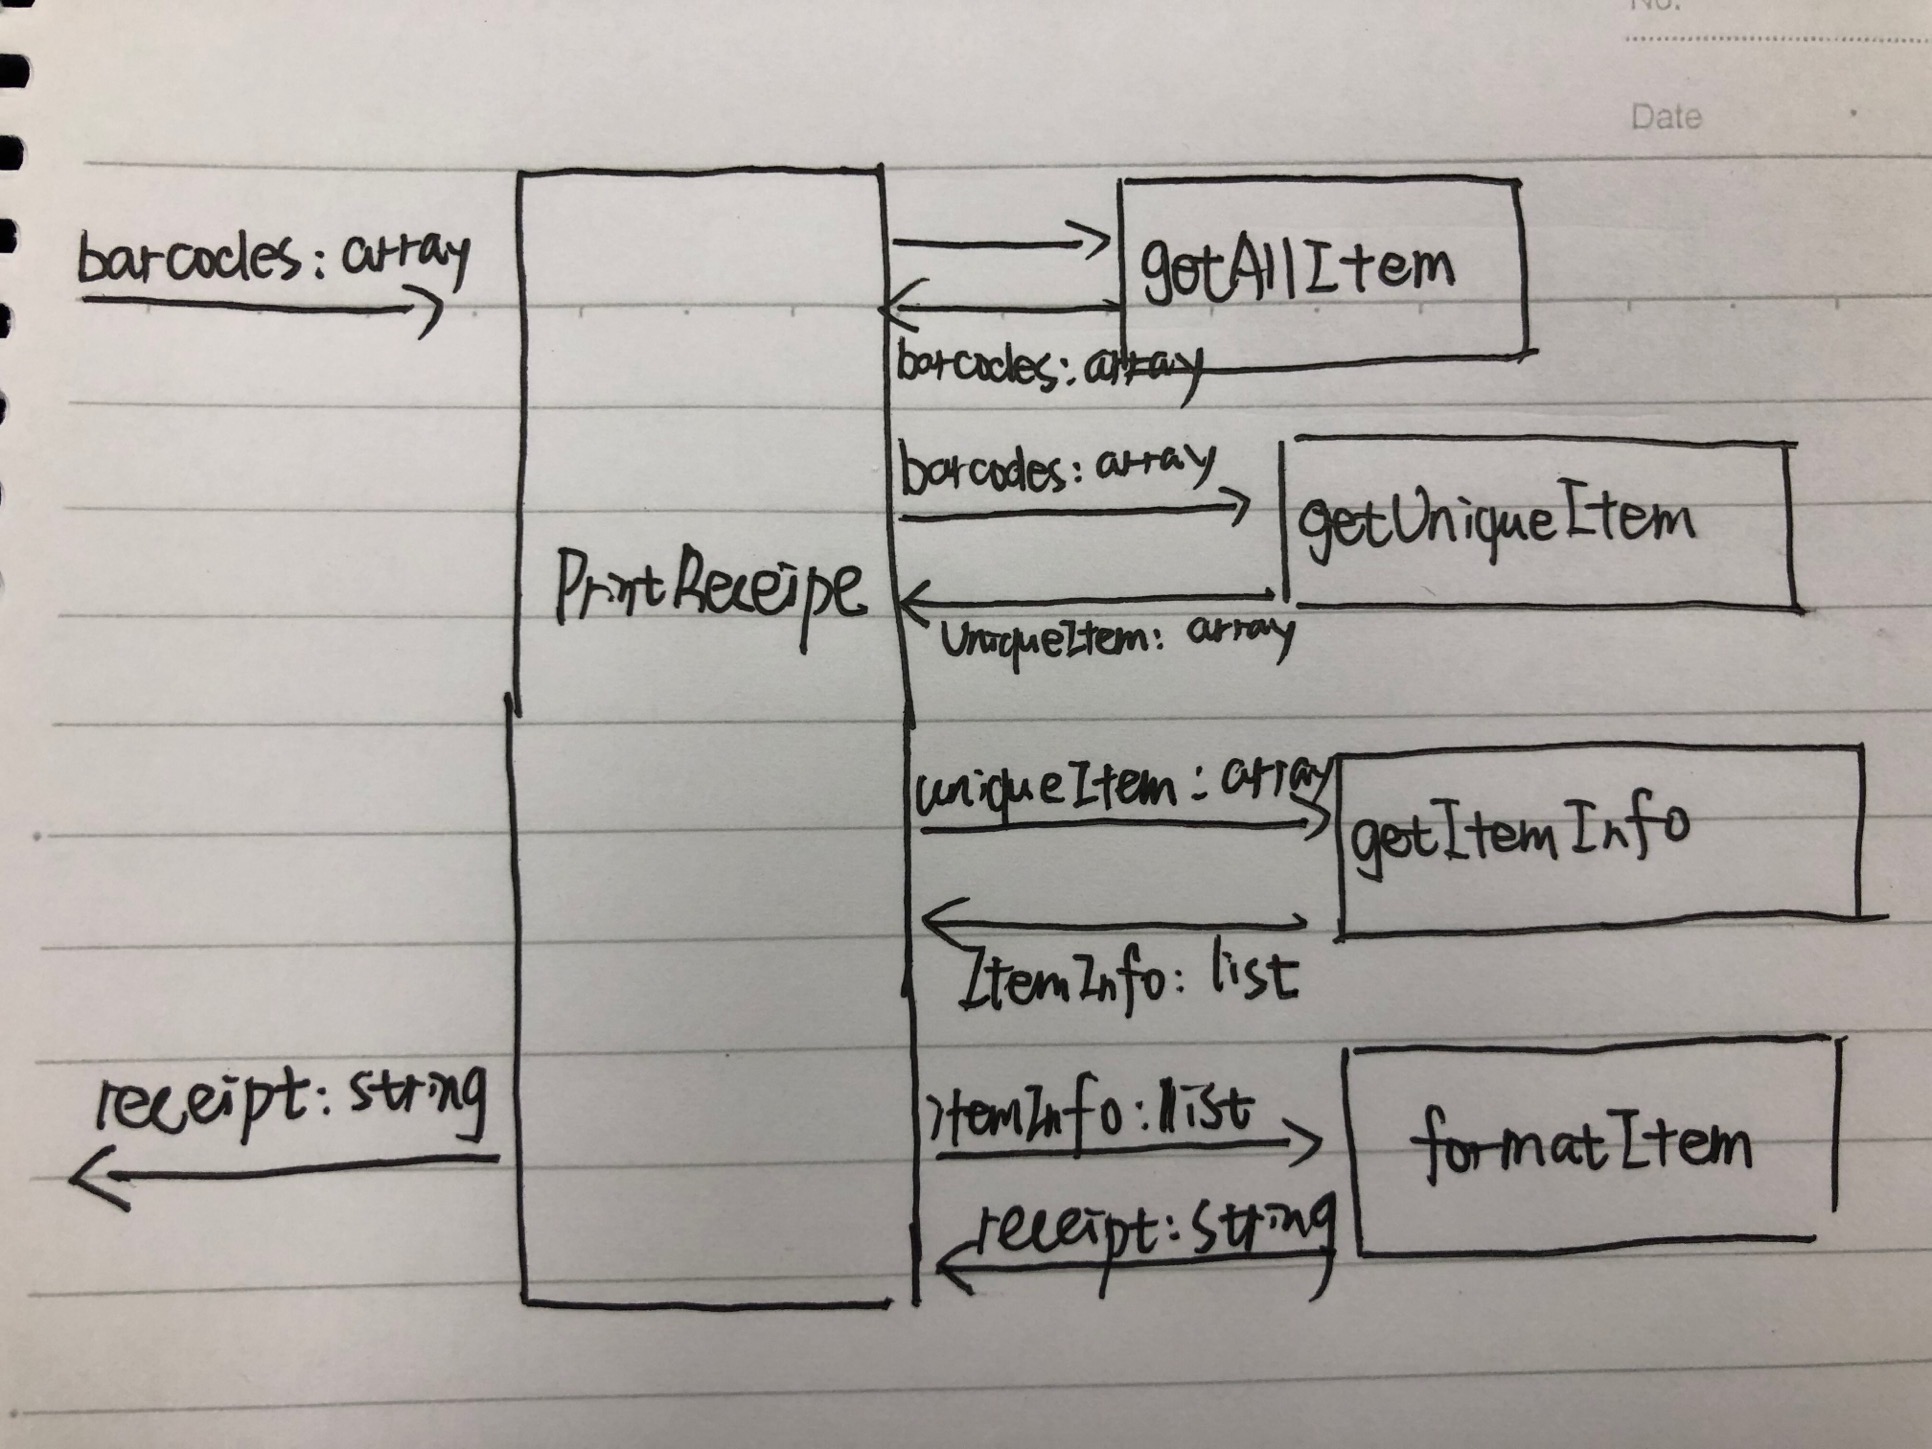 No.
Date
barcodes: array
getAllItem
barcodes: array
barcodes: array
getUniqueItem
PrintReceipe
UniqueItem: array
uniqueItem: array
getItemInfo
ItemInfo: list
receipt: string
itemInfo: list
formatItem
receipt: string